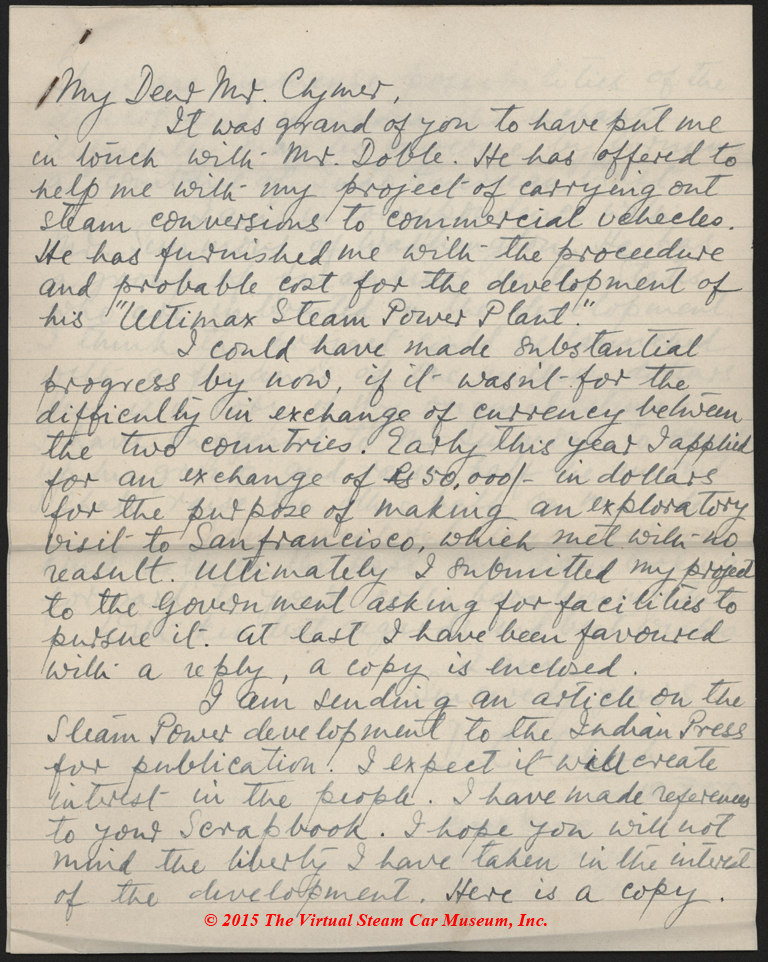 My Dear Mr. Clymer,
It was grand of you to have put me
in touch with Mr. Doble. He has offered to
help me with my project of carrying out
steam conversions to commercial vehecles.
He has furnished me with the proceedure
and probable cost for the development of
his "Ultimax Steam Power Plant."
I could have made substantial
progress by now, if it wasn't for the
difficulty in exchange of currency between
the two countries. Early this year I applied
for an exchange of Rs 50,000/- in dollars
for the purpose of making an exploratory
visit to Sanfrancisco, which met with no
reasult. Ultimately I submitted my project
to the Government asking for facilities to
pursue it. At last I have been favoured
with a reply, a copy is enclosed.
I am sending an article on the
Steam Power development to the Indian Press
for publication. I expect it will create
interest in the people. I have made references
to your Scrapbook. I hope you will not
mind the liberty I have taken in the interest
of the development. Here is a copy.
© 2015 The Virtual Steam Car Museum, Inc.